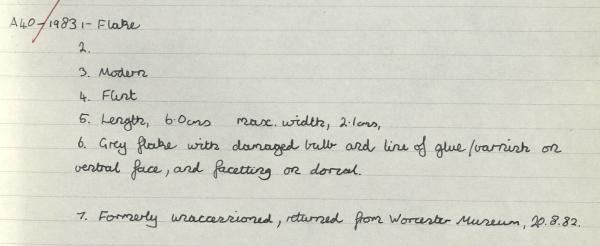 A40-1983 1- Flake
2.
3. Modern
4. Flint
5. Length, 6.0cms max. width, 2.1cms,
6. Grey flake with damaged bulb and line of glue/varnish on
ventral face, and facetting on dorsal.
7. Formerly unaccessioned, returned from Worcester Museum, 20.8.82.